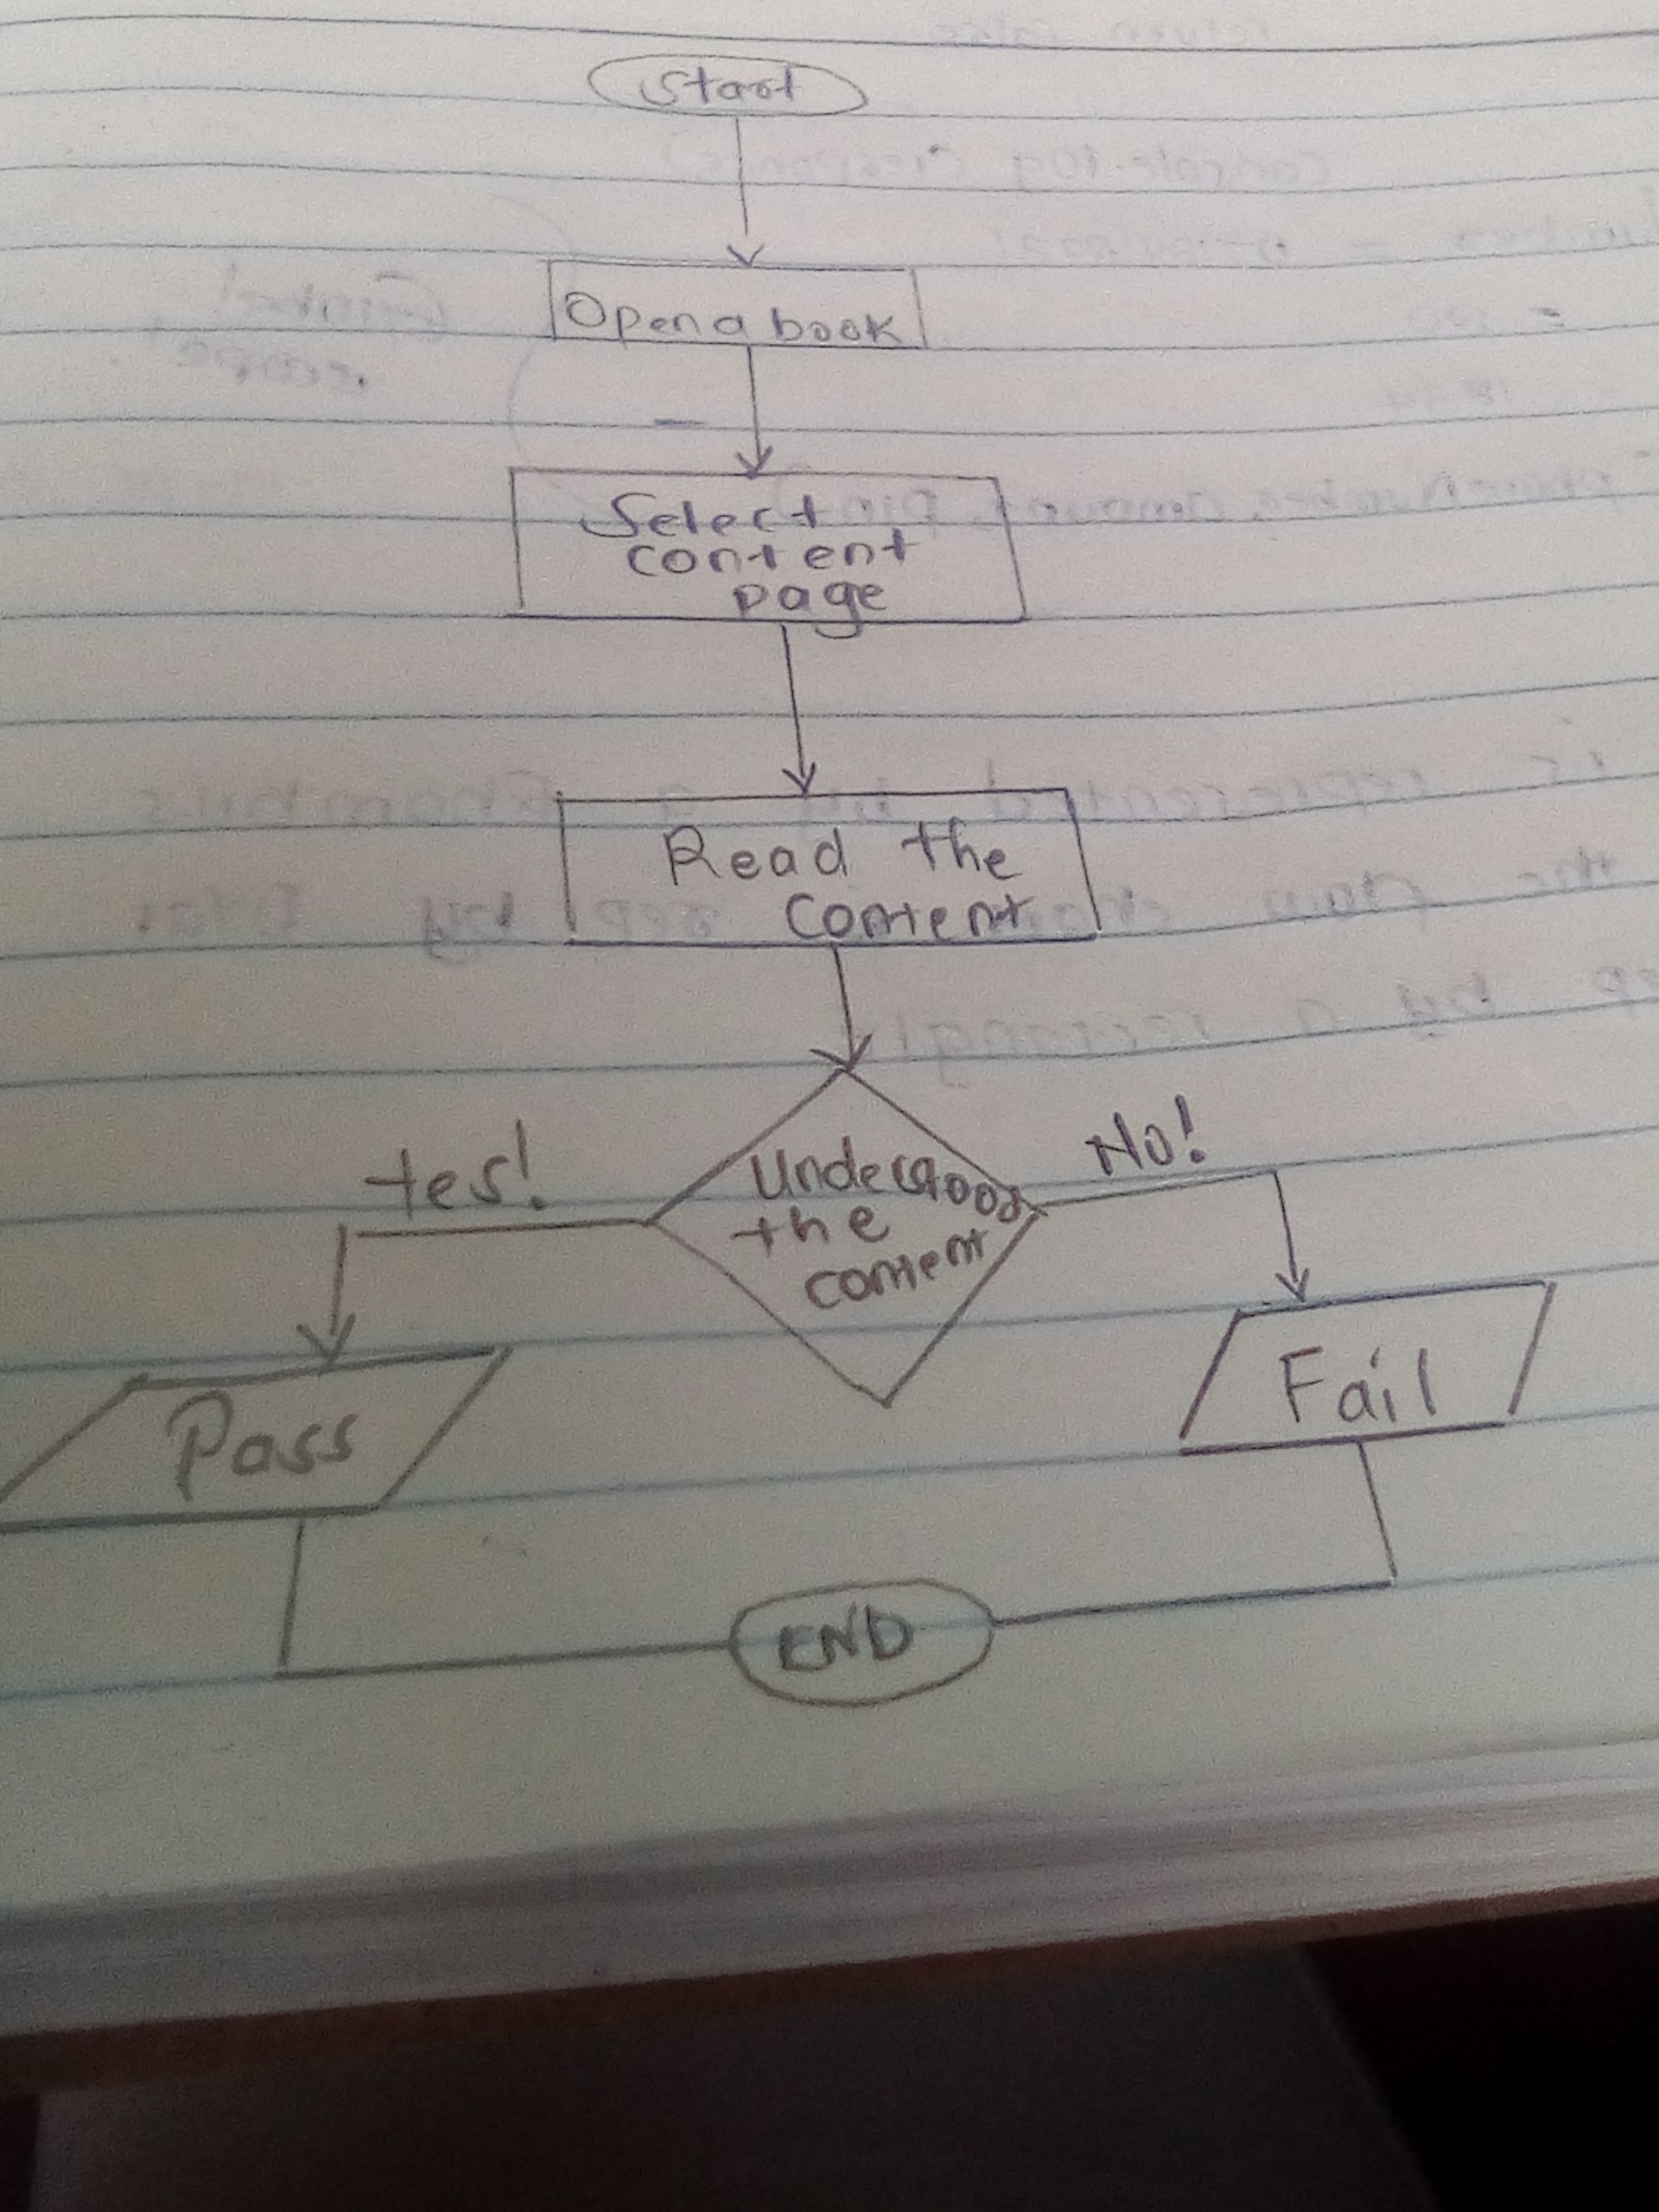 Start
Open a book
Select
content
page
Read the
Content
Yes!
No!
Understood
the
content
Pass
Fail
END